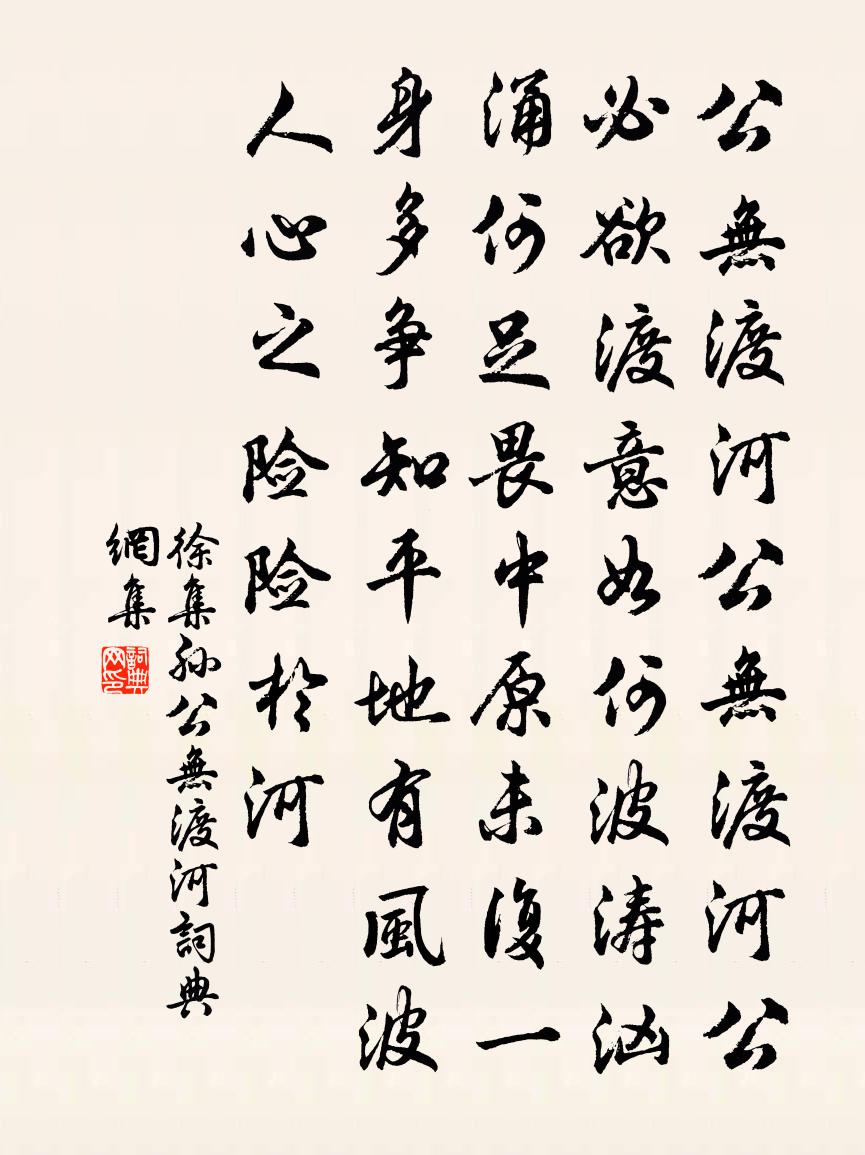 公無渡河公無渡河公
必欲渡意如何波涛汹
涌何足畏中原未復一
身多争知平地有風波
人心之险险於河
徐集孙公無渡河詞典
網集
詞典
网印